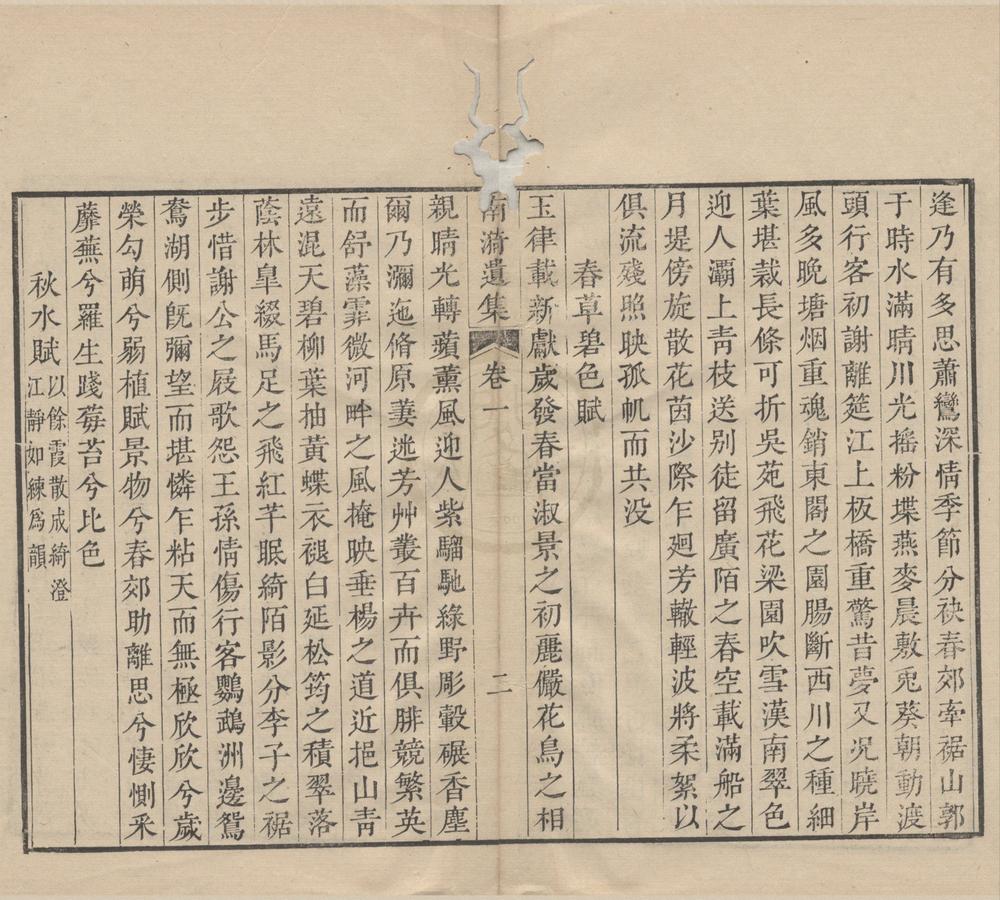 逢乃有多思蕭鸞深情季節分袂春郊牽裾山郭
于時水滿晴川光搖粉堞燕麥晨敷兎葵朝動渡
頭行客初謝離筵江上板橋重驚昔夢又况曉岸
風多晚塘烟重魂銷東閣之園腸斷西川之種細
葉堪裁長條可折吳苑飛花梁園吹雪漢南翠色
迎人灞上靑枝送別徒留廣陌之春空載滿船之
月堤傍旋散花茵沙際乍廻芳轍輕波將柔絮以
俱流殘照映孤帆而共没
春草碧色賦
玉律載新獻歲發春當淑景之初麗儼花鳥之相
南漪遺集
卷一
二
親晴光轉蘋薰風迎人紫騮馳綠野彫轂碾香塵
爾乃瀰迤脩原萋迷芳艸叢百卉而俱腓競繁英
而舒藻霏微河畔之風掩映垂楊之道近挹山靑
遠混天碧柳葉抽黃蝶衣褪白延松筠之積翠落
蔭林臯綴馬足之飛紅芊眠綺陌影分李子之裾
步惜謝公之屐歌怨王孫情傷行客鸚鵡洲邊鴛
鴦湖側旣彌望而堪憐乍粘天而無極欣欣兮歲
榮勾萌兮弱植賦景物兮春郊助離思兮悽惻采
蘼蕪兮羅生踐莓苔兮比色
秋水賦
以餘霞散成綺澄
江靜如練爲韻